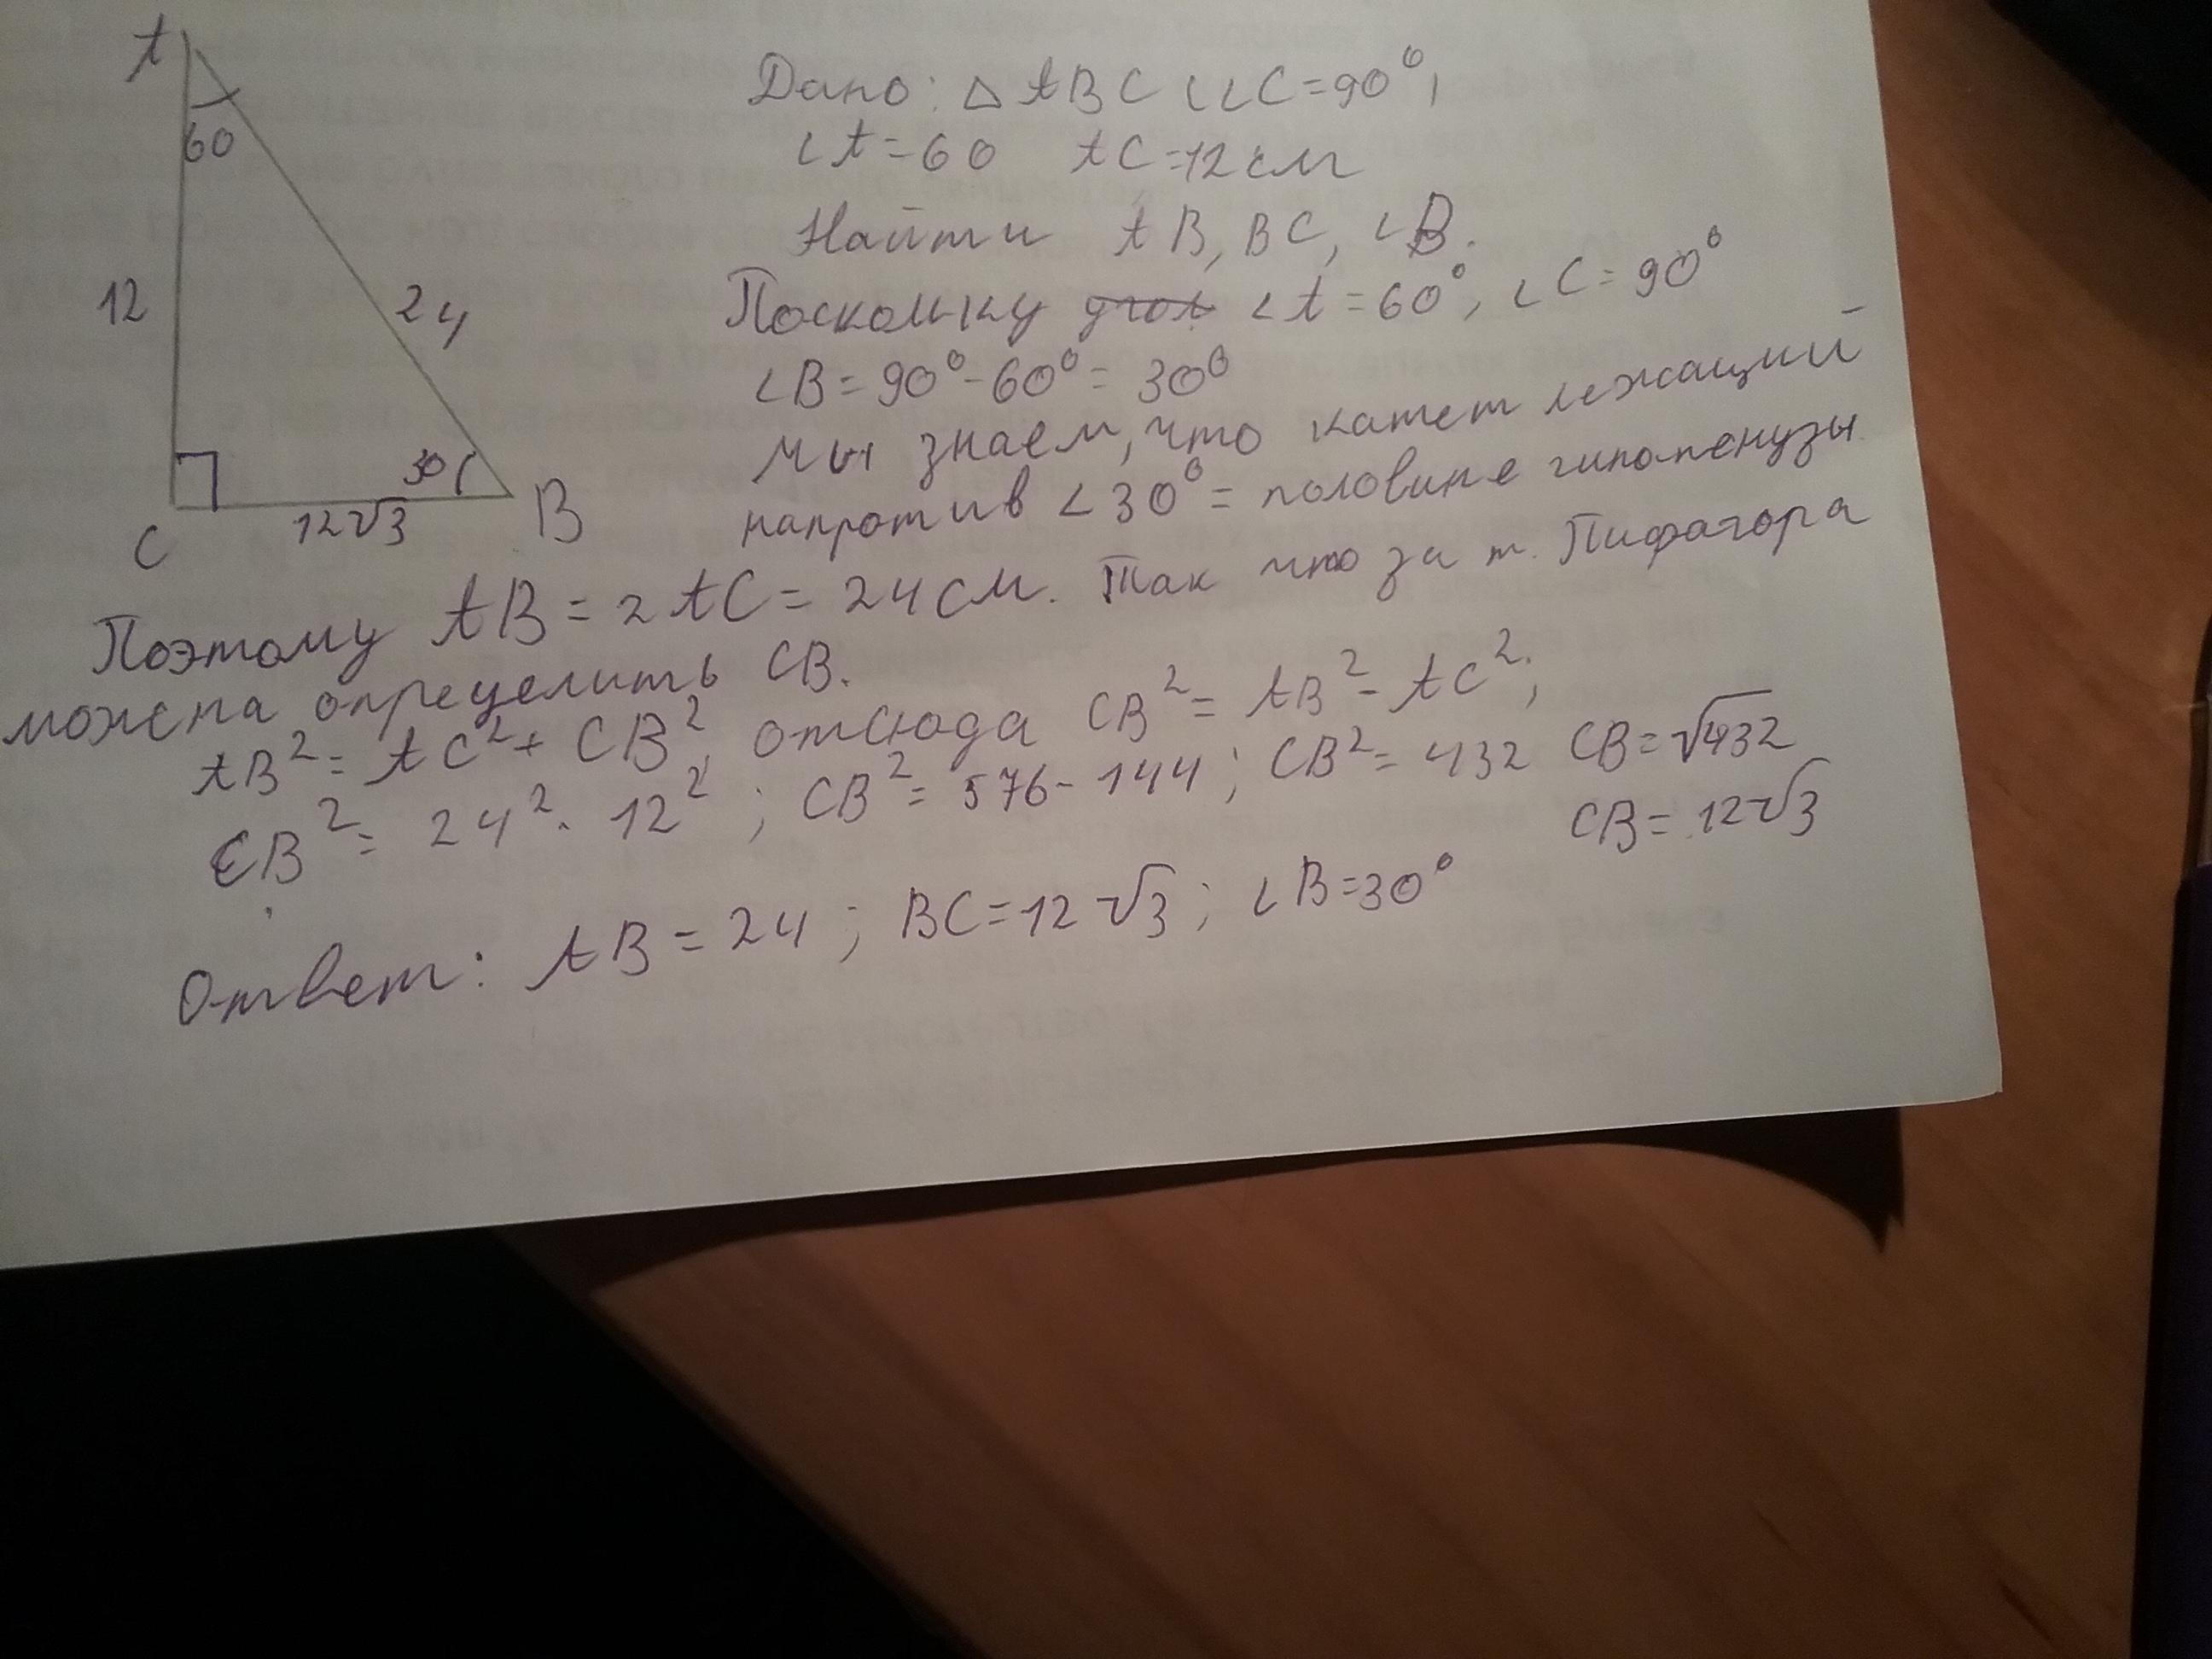 A
60
12
24
30
C
12√3
B
Дано: △ ABC (∠C=90°,
∠A=60 AC=12см
Найти AB, BC, ∠B.
Поскольку ∠A=60°, ∠C=90°
∠B=90°-60°=30°
мы знаем, что катет лежащий
напротив ∠30°= половине гипотенузы
Поэтому AB=2AC=24см. Так что за т. Пифагора
можна определить CB.
AB²=AC²+CB², отсюда CB²=AB²-AC²;
CB²=24²-12²; CB²=576-144; CB²=432 CB=√432
CB=12√3
Ответ: AB=24; BC=12√3; ∠B=30°